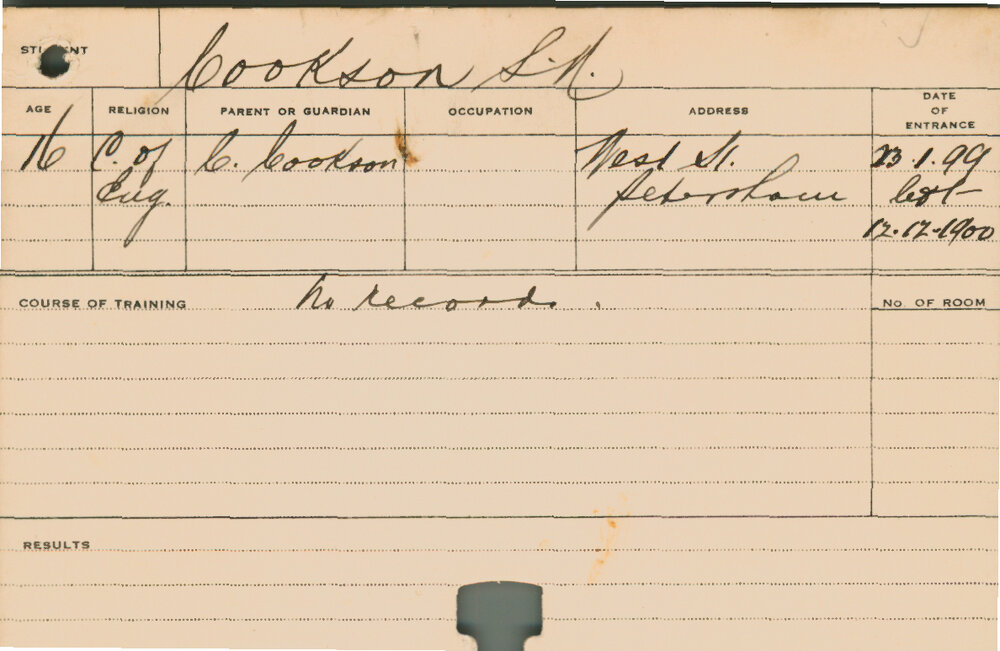 STUDENT Cookson S.N.
AGE RELIGION PARENT OR GUARDIAN OCCUPATION ADDRESS DATE OF ENTRANCE
16 C. of C. Cookson West St. 23.1.99
Eng. Petersham left
12.12.1900
COURSE OF TRAINING No records. No. OF ROOM
RESULTS